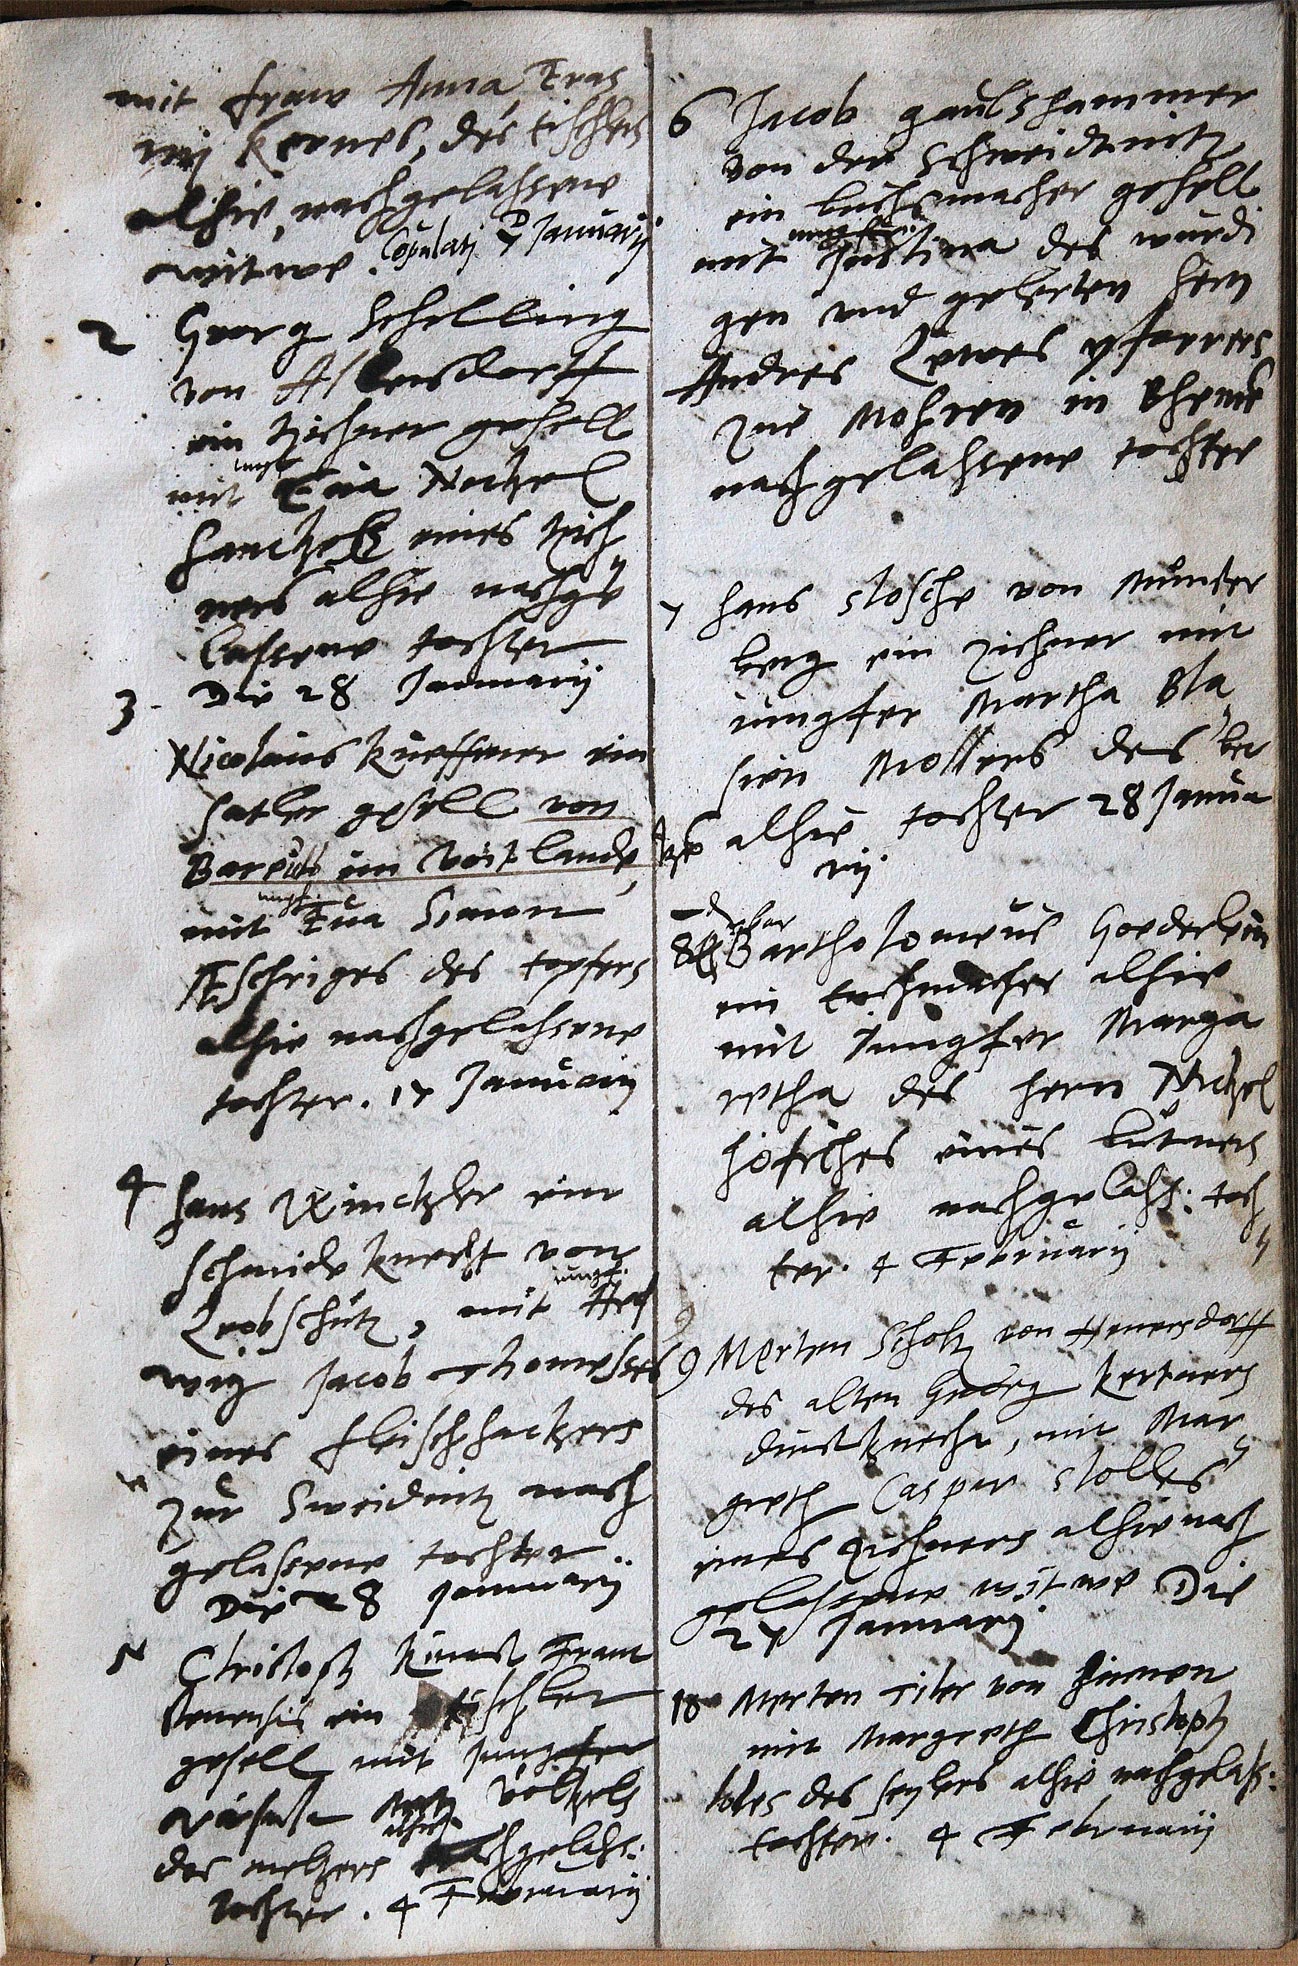 mit fraw Anna Eras
mj Kernes, des tischlers
alhie, nachgelassene
witwe. Copulatj 7 Januarij
2 Georg Schelling
von
ein zichner gesell
mit jungf. Eua Nickel
eines zich
ners alhie nachge
lassene tochter
Die 28 Januarij
3
Nicolaus Kueffner ein
satler gesell von
Bareut im Voitlande,
mit jungf. Eua Simon
des topfers
alhie nachgelassene
tochter. 17 Januarij
4 hans Winckler ein
schmide knecht von
Leobschutz, mit jungf. Hed
wig Jacob
eines fleischhackers
zur Sweidnitz nach
gelassene tochter
Die 28 Januarij
5 Christoph Kunast Franc
stenensis ein tischler
gesell mit jungfer
alhie
des meltzers nachgelass:
tochter. 4 Februarij
6 Jacob gaulshammer
von der Schweidnitz
ein tuchmacher gesell
mit jungf. Justina des wurdi
gen vnd gelerten hern
Andres Lewes pfarrers
zue Mohren in Bheme
nachgelassene tochter
7 hans Stosche von Munster
berg ein zichner mit
jungfer Martha Bla
sien Mollers des
alhie tochter 28 Janua
rij.
8 Bartholomeus
ein tuchmacher alhie
mit Jungfer Marga
retha des hern Nickel
eines
alhie nachgelass: toch
ter. 4 Februarij
9 Merten Scholtz von
des alten Georg Kertners
dinstknecht, mit Mar
greth Caspar Stolles
eines zichners alhie nach
gelassene witwe Die
27 Januarij
10 Merten Tiler von
mit Margreth Christoph
des seylers alhie nachgelass:
tochter. 4 Februarij